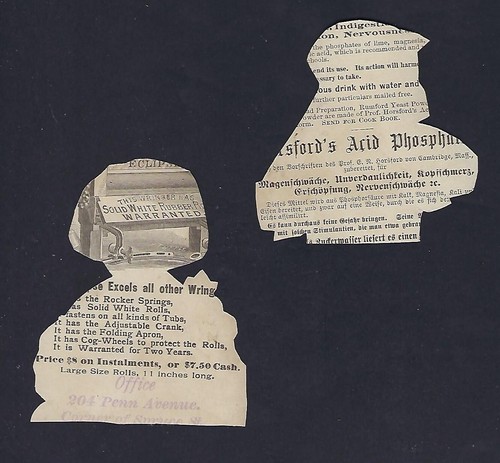 ECLIP
THIS WRINGER HAS
SOLID WHITE RUBBER R
WARRANTED
se Excels all other Wring
the Rocker Springs,
as Solid White Rolls,
fastens on all kinds of Tubs,
It has the Adjustable Crank,
It has the Folding Apron,
It has Cog-Wheels to protect the Rolls,
It is Warranted for Two Years.
Price $8 on Instalments, or $7.50 Cash.
Large Size Rolls, 11 inches long.
Office
204 Penn Avenue.
Corner of Spruce St
Indigesti
on, Nervousne
the phosphates of lime, magnesia,
ic acid, which is recommended and
hools.
end its use. Its action will harm
essary to take.
ious drink with water and
further particulars mailed free.
d Preparation, Rumford Yeast Pow
owder are made of Prof. Horsford's Ac
orm. SEND FOR COOK BOOK.
rsford's Acid Phospha
den Vorschriften des Prof. E. N. Horsford von Cambridge, Mass.,
zubereitet, für
Magenschwäche, Unverdaulichkeit, Kopfschmerz,
Erschöpfung, Nervenschwäche ꝛc.
Dieses Mittel wird aus Phosphatsäure mit Kalk, Magnesia, Kali
Eisen bereitet, und zwar auf eine Weise, durch die es sich
leicht assimilirt.
Es kann durchaus keine Gefahr bringen. Seine
mit solchen Stimulantien, die man etwa gebrau
Zuckerwasser liefert es einen